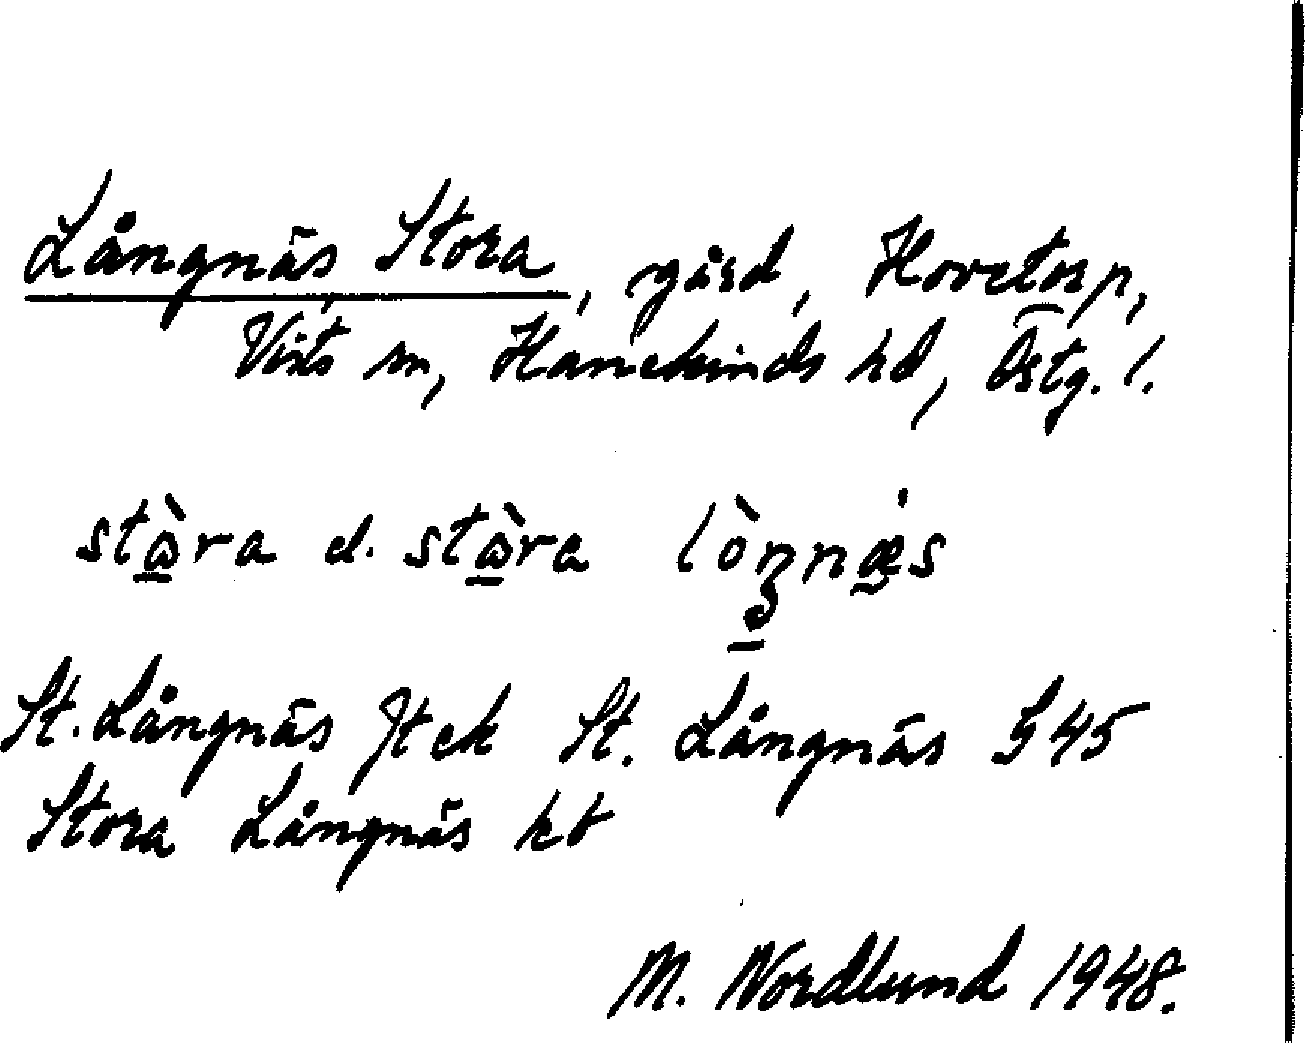 Långnäs Stora, gård, Hovetorp,
Vists sn, Hanekinds hd, Östg. l.
stɷ̀ra el. stɷ̀ra lòŋnæ̀s
St. Långnäs Jt ek St. Långnäs G 45
Stora Långnäs kb
M. Nordlund 1948.